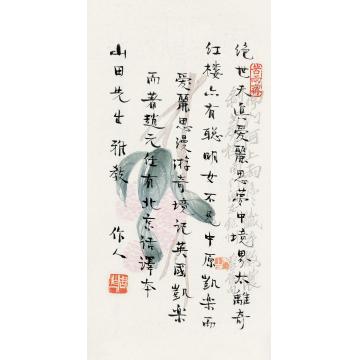 绝世天真爱丽思梦中境界太离奇
红楼亦有聪明女不见中原凯乐而
爱丽思漫游奇境记英国凯乐
而著赵元任有北京话译本
山田先生雅教 作人